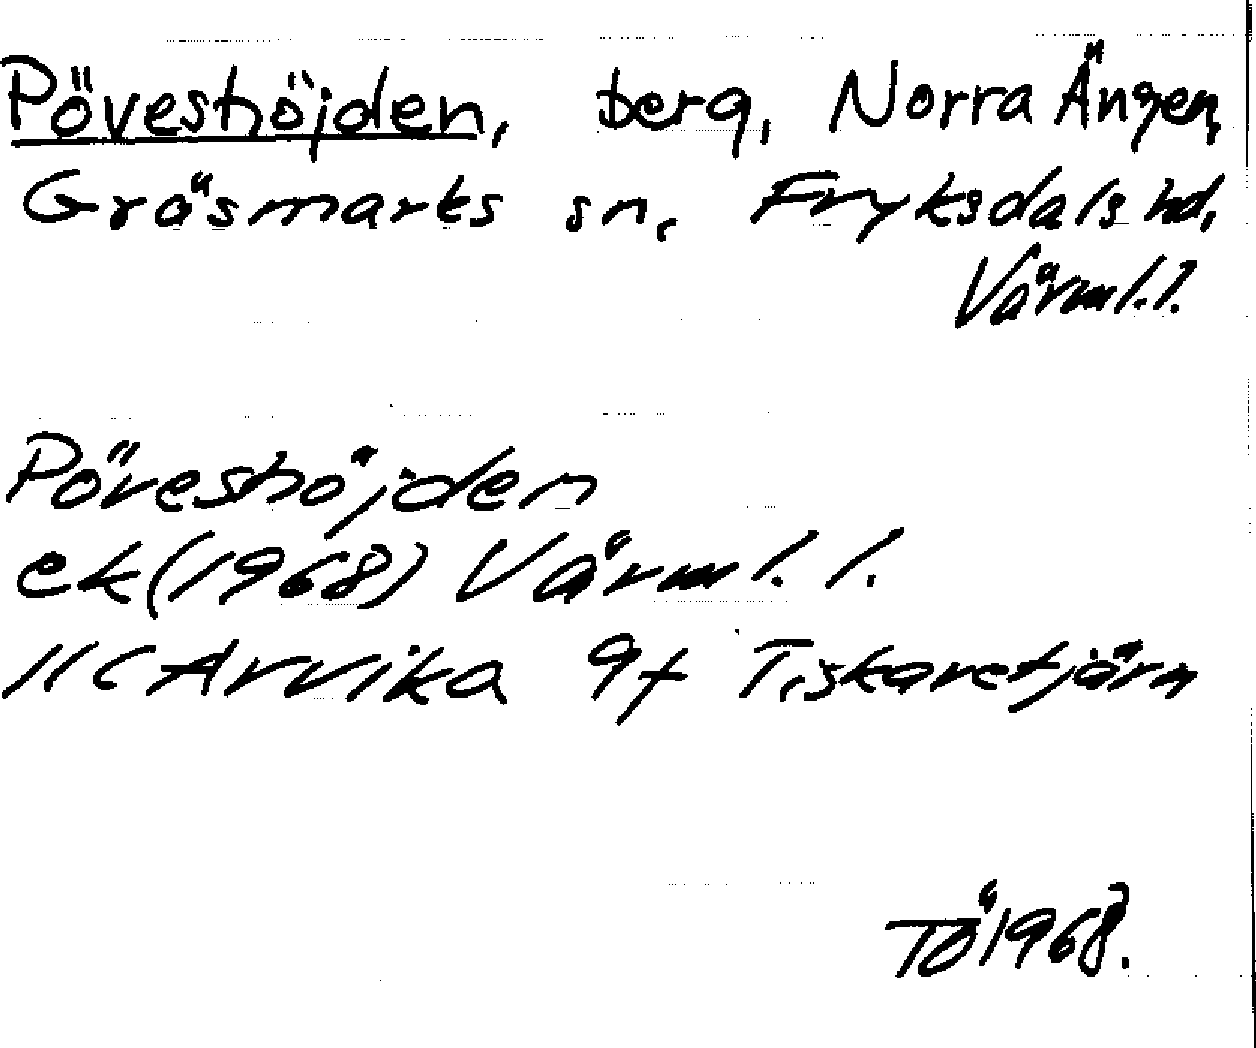 Pöveshöjden, berg, Norra Ängen,
Gräsmarks sn, Fryksdals hd,
Värml.l.
Pöveshöjden
ek(1968) Värml. l.
11C Arvika 9f Tiskaretjärn
TÖ 1968.